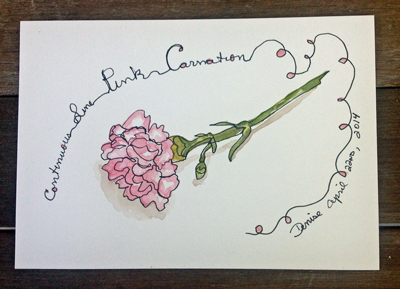 Continuous Line Pink Carnation
Denise April 22nd, 2014